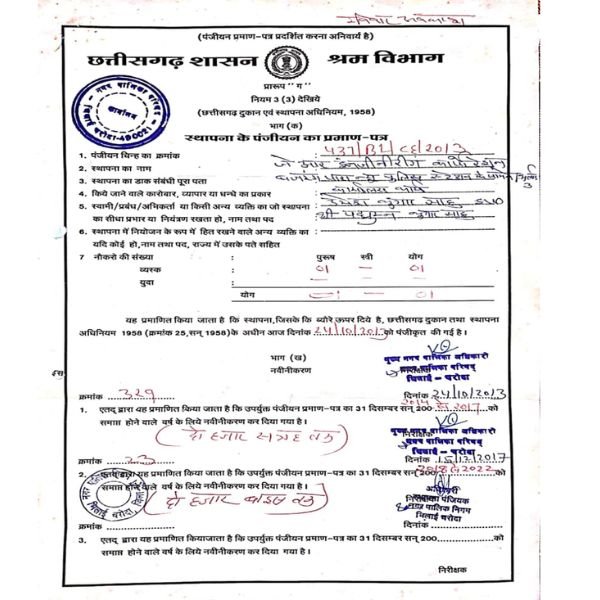 (पंजीयन प्रमाण-पत्र प्रदर्शित करना अनिवार्य है)
छत्तीसगढ़ शासन श्रम विभाग
प्रारूप "ग"
नियम 3 (3) देखिये
(छत्तीसगढ़ दुकान एवं स्थापना अधिनियम, 1958)
भाग (क)
स्थापना के पंजीयन का प्रमाण-पत्र
नगर पालिका परिषद्
कार्यालय
भिलाई चरोदा-490021
1. पंजीयन चिन्ह का क्रमांक 437/BL/CG/2013
2. स्थापना का नाम जे आर इन्जीनीरींग कार्पोरेशन
3. स्थापना का डाक संबंधी पूरा पता
4. किये जाने वाले कारोबार, व्यापार या धन्धे का प्रकार कार्यालय कार्य
5. स्वामी/प्रबंध/अभिकर्ता या किसी अन्य व्यक्ति का जो स्थापना कुमार साहु S/O
का सीधा प्रभार या नियंत्रण रखता हो, नाम तथा पद श्री कुमार साहु
6. स्थापना में नियोजन के रूप में हित रखने वाले अन्य व्यक्ति का
यदि कोई हो, नाम तथा पद, राज्य में उसके पते सहित
7 नौकरो की संख्या पुरूष स्त्री योग
व्यस्क 01 - 01
युवा - - -
योग 01 - 01
यह प्रमाणित किया जाता है कि स्थापना, जिसके कि ब्यौरे ऊपर दिये है, छत्तीसगढ़ दुकान तथा स्थापना
अधिनियम 1958 (क्रमांक 25, सन् 1958) के अधीन आज दिनांक 24/10/2013 को पंजीकृत की गई है।
भाग (ख)
नवीनीकरण
निरीक्षक
मुख्य नगर पालिका अधिकारी
नगर पालिका परिषद्
भिलाई - चरोदा
क्रमांक 329 दिनांक 24/10/2013
2014 से 2017
1. एतद् द्वारा यह प्रमाणित किया जाता है कि उपर्युक्त पंजीयन प्रमाण-पत्र का 31 दिसम्बर सन् 200 को
समाप्त होने वाले वर्ष के लिये नवीनीकरण कर दिया गया है।
(दो हजार सत्रह तक)
निरीक्षक
मुख्य नगर पालिका अधिकारी
नगर पालिका परिषद्
भिलाई - चरोदा
क्रमांक 23 दिनांक 15/12/2017
2018 से 2022
2. एतद् द्वारा यह प्रमाणित किया जाता है कि उपर्युक्त पंजीयन प्रमाण-पत्र का 31 दिसम्बर सन् 200 को
समाप्त होने वाले वर्ष के लिये नवीनीकरण कर दिया गया है।
(दो हजार बाइस तक)
नगर पालिक निगम
भिलाई चरोदा
क्रमांक दिनांक
3. एतद् द्वारा यह प्रमाणित किया जाता है कि उपर्युक्त पंजीयन प्रमाण-पत्र का 31 दिसम्बर सन् 200 को
समाप्त होने वाले वर्ष के लिये नवीनीकरण कर दिया गया है।
निरीक्षक